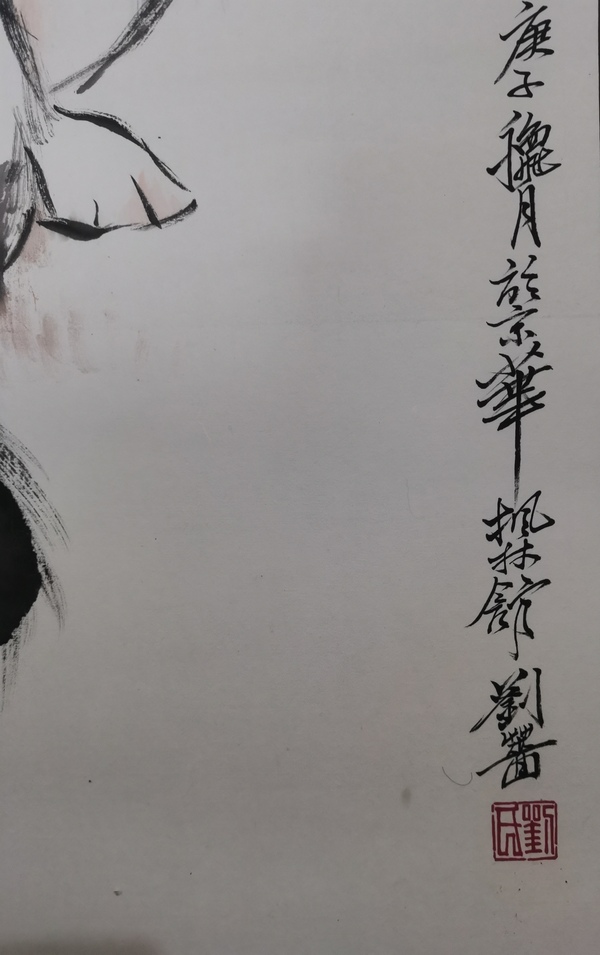 庚子穐月於京華楓林舘劉
劉氏